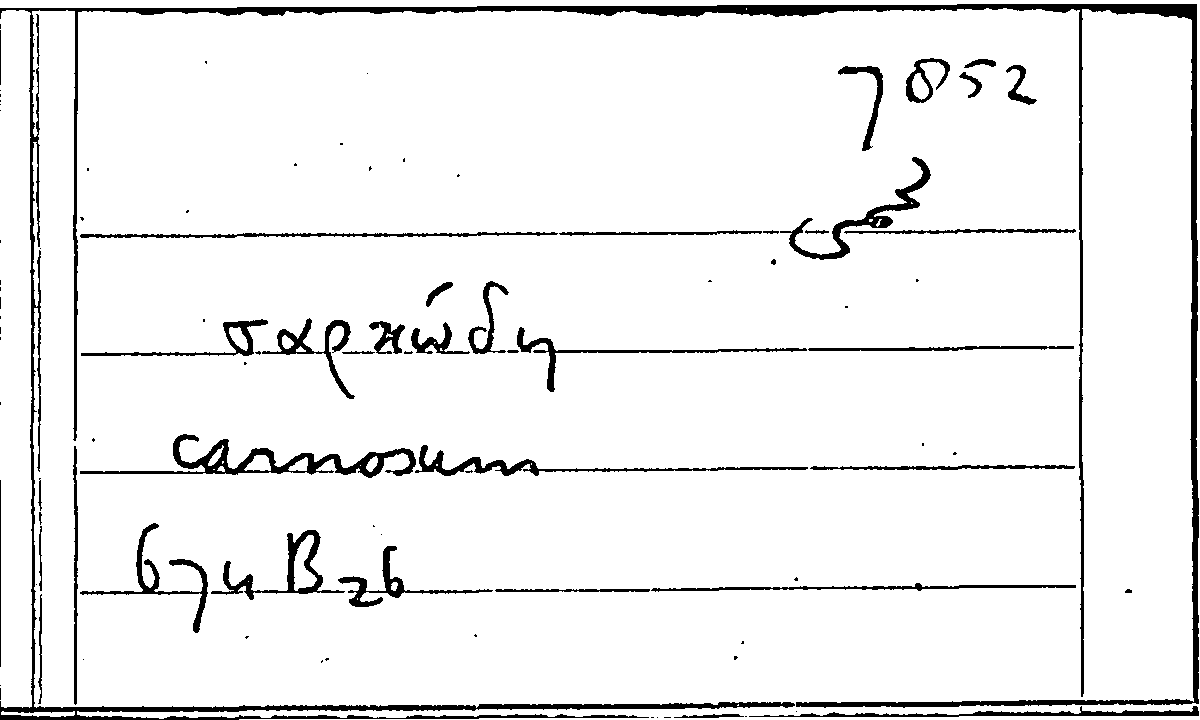 7852
σαρκώδη
carnosum
674 B 26